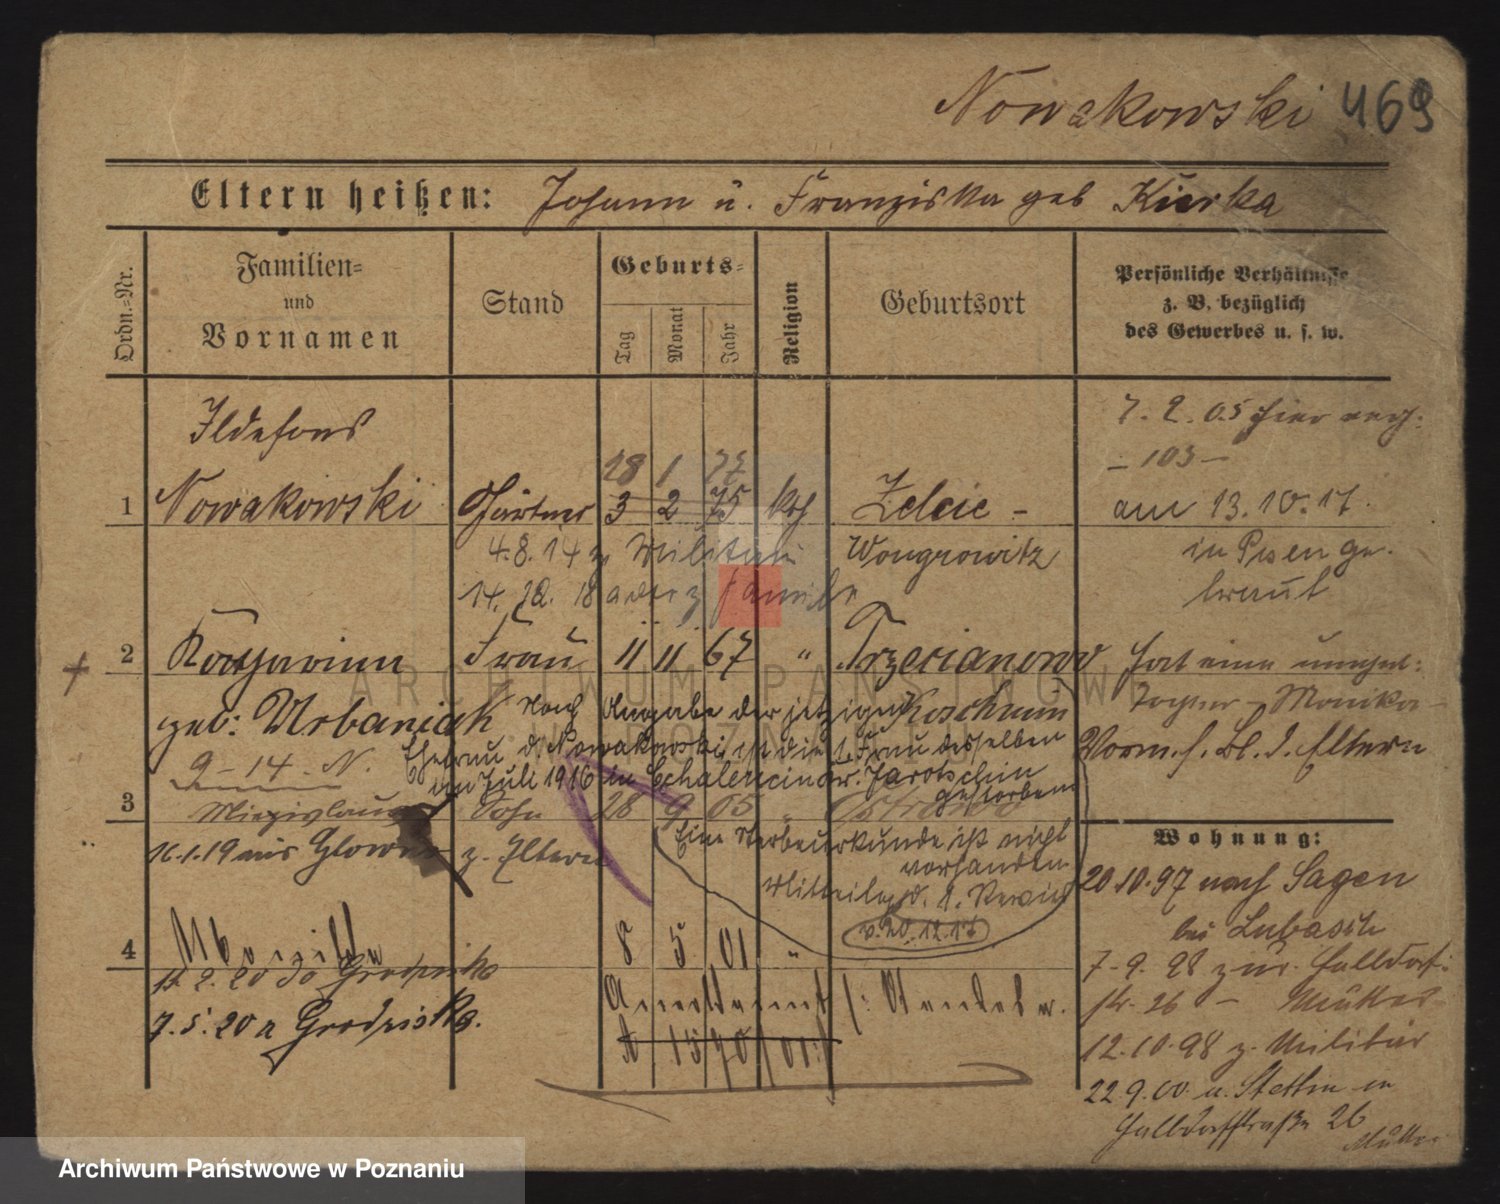 Nowakowski 469
Eltern heißen: Johann u. Franziska geb Kurka
Ordn.-Nr.
Familien-
und
Vornamen
Stand
Geburts-
Tag
Monat
Jahr
Religion
Geburtsort
Persönliche Verhältnisse
z. B. bezüglich
des Gewerbes u. s. w.
Ildefons
7. 2. 05 hier
- 103 -
28 1 77
1 Nowakowski Gärtner 3 2 75 kth Zelcie -
am 13.10.17.
4.8.14 z Militär Wongrowitz
in Posen ge-
traut
14. 12. 18 z Familie
2 Katharina Frau 11 11 67 " Trzecianowo
hat eine unehel:
geb: Urbaniak
Koschmin
Tochter - Monika -
Nach Angabe der jetzigen
Ehefrau d. Nowakowski, ist die 1. Frau desselben
im Juli 1916 in Kr. Jarotschin
gestorben
Vorm. s. Bl. d. Eltern
9 - 14. N.
3 Miezislaus Sohn 28 9 05 Ostrowo
Eine Sterbeurkunde ist nicht
vorhanden
Mitteilg d. 1. Revier
v. 20.12.17
16.1.19 aus z. Eltern
Wohnung:
20.10.97 nach Sagen
bei Lubasch
7. 9. 98 zur. Halldorf:
str. 26 - Müller
12.10.98 z. Militär
22 9. 00 a. Stettin in
Halldorfstraße 26
Müller
4 8 5 01 "
11. 2. 20 do Grodzisko
7. 5. 20 a Grodziska.
Archiwum Państwowe w Poznaniu
ARCHIWUM PAŃSTWOWE
W POZNANIU